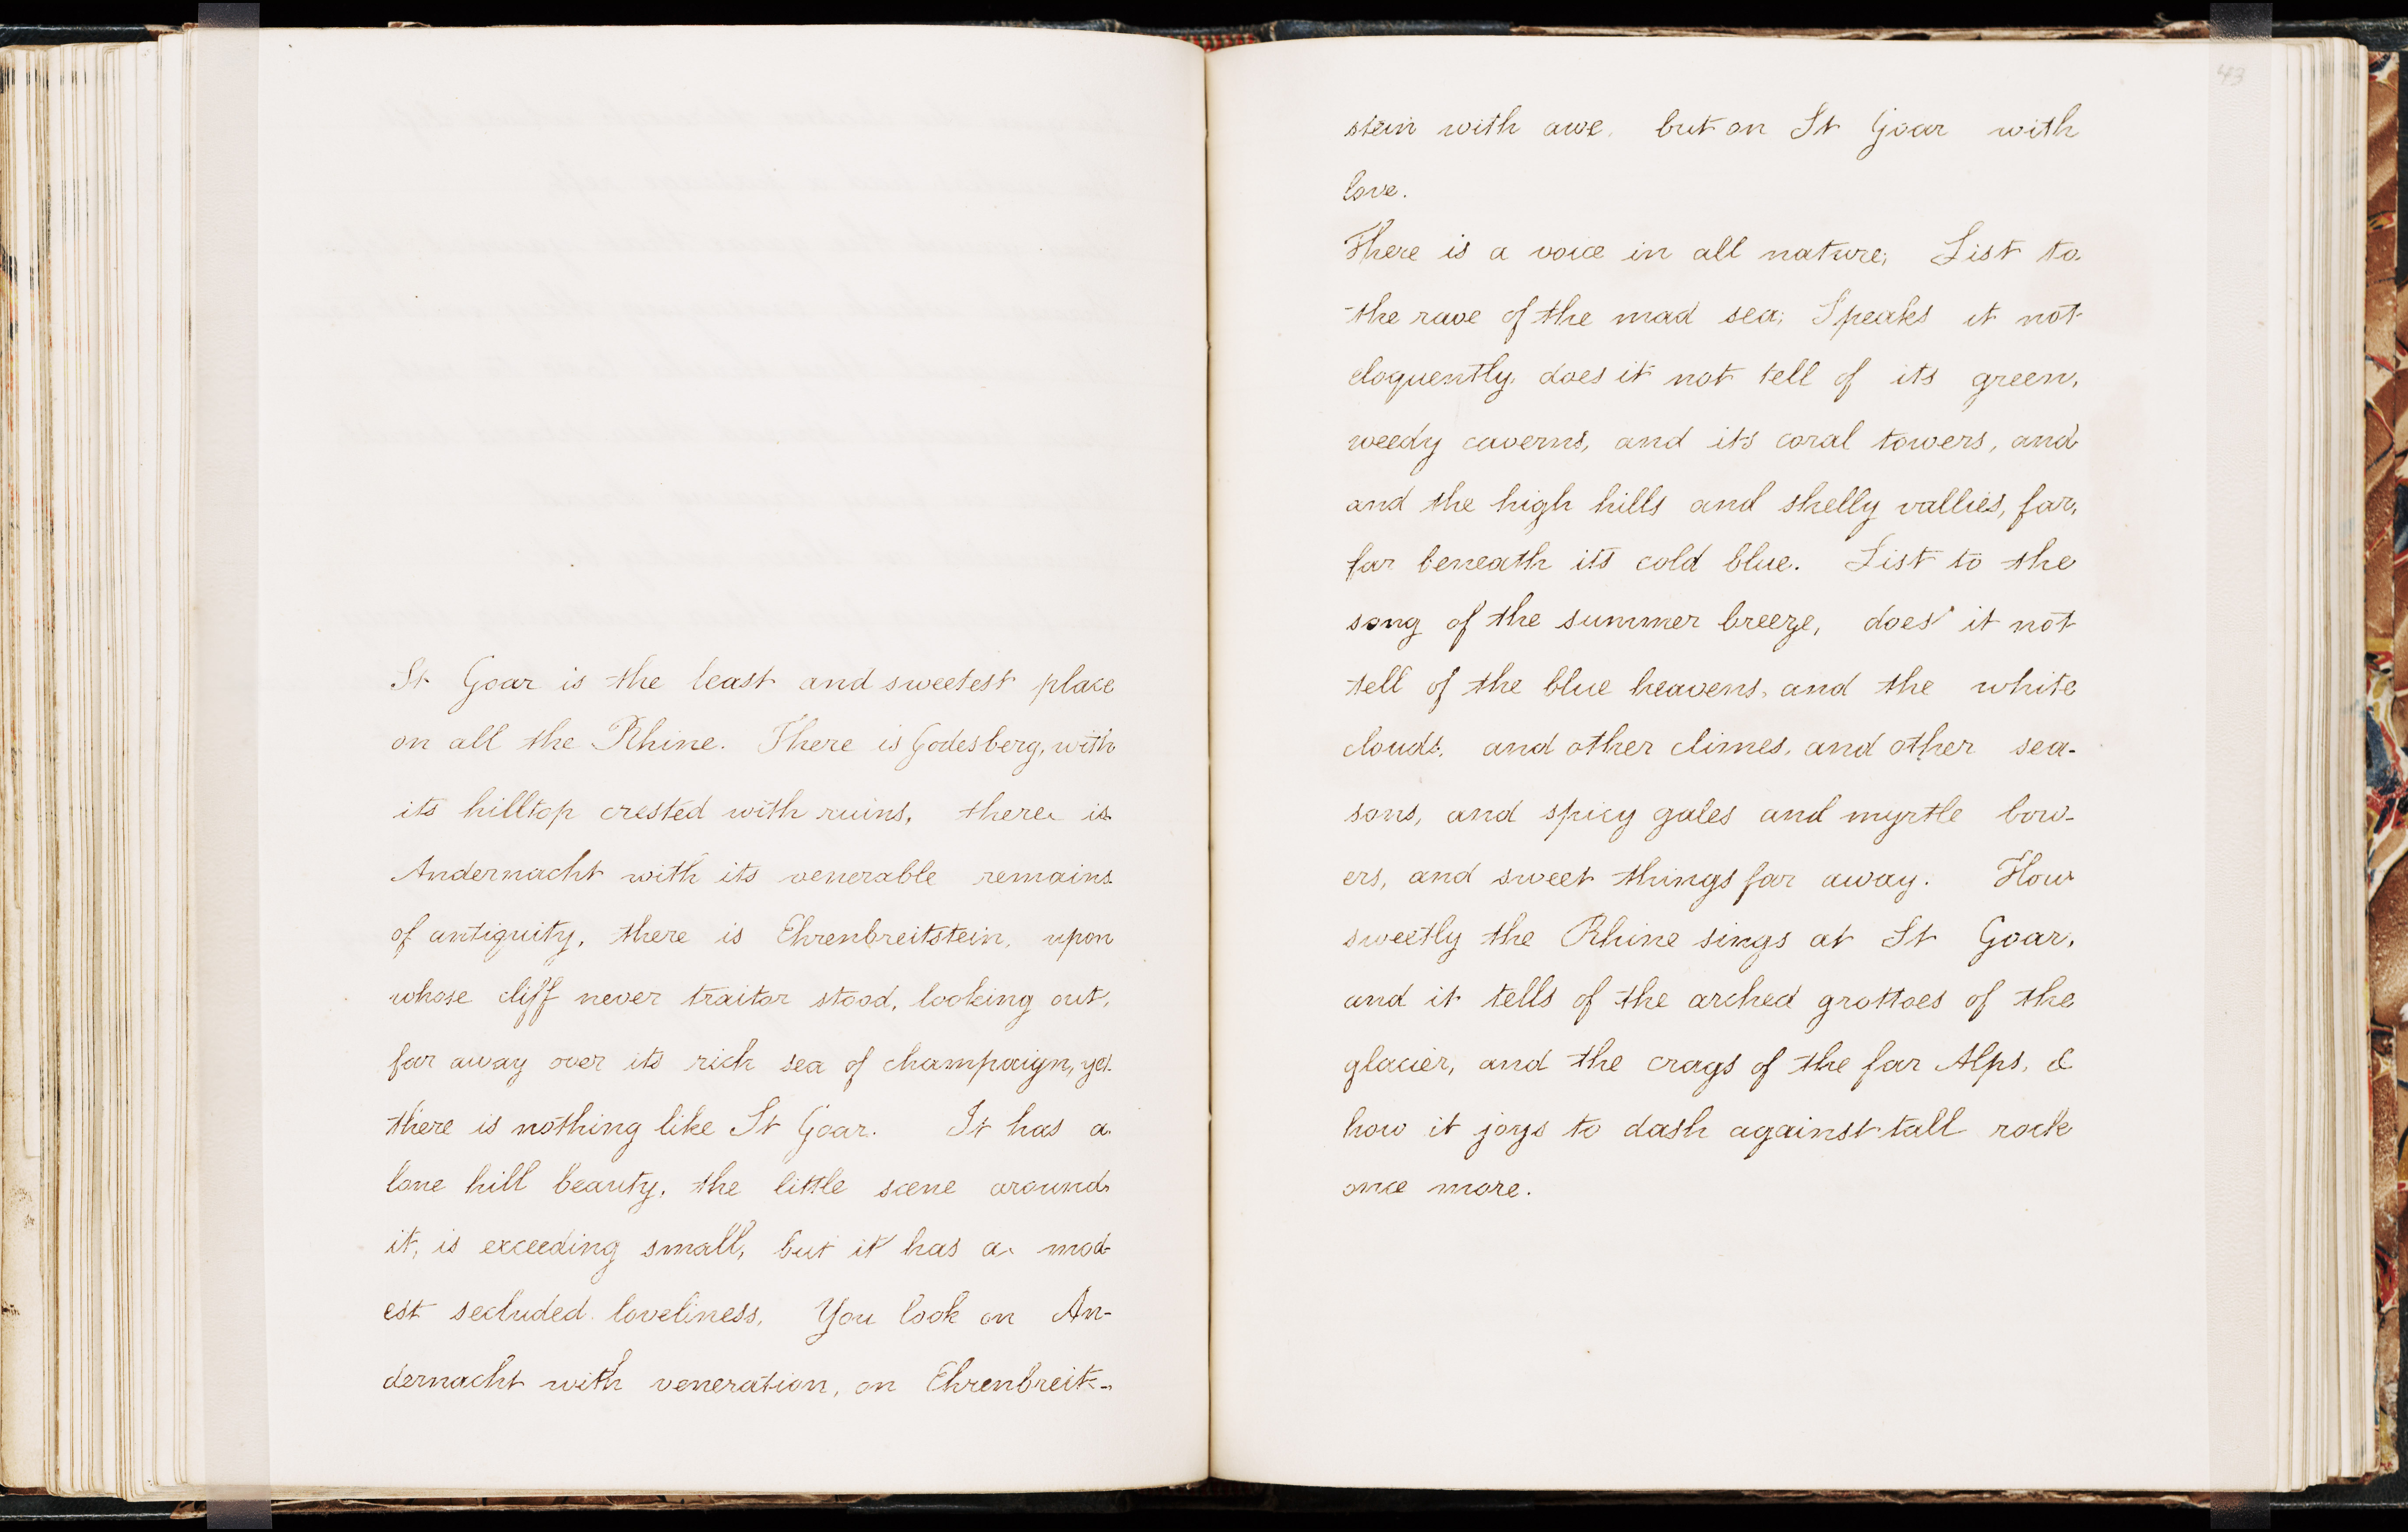 St Goar is the least and sweetest place
on all the Rhine. There is Godesberg, with
its hilltop crested with ruins, there is
Andernacht with its venerable remains
of antiquity, there is Ehrenbreitstein, upon
whose cliff never traitor stood, looking out,
far away over its rich sea of champaign, yet
there is nothing like St Goar. It has a
lone hill beauty, the little scene around
it, is exceeding small, but it has a mod-
est secluded loveliness. You look on An-
dernacht with veneration, on Ehrenbreit-
43
stein with awe, but on St Goar with
love.
There is a voice in all nature; List to
the rave of the mad sea; Speaks it not
eloquently, does it not tell of its green,
weedy caverns, and its coral towers, and
and the high hills and shelly vallies, far,
far beneath its cold blue. List to the
song of the summer breeze, does it not
tell of the blue heavens, and the white
clouds, and other climes, and other sea-
sons, and spicy gales and myrtle bow-
ers, and sweet things far away. How
sweetly the Rhine sings at St Goar,
and it tells of the arched grottoes of the
glacier, and the crags of the far Alps, &
how it joys to dash against tall rock
once more.